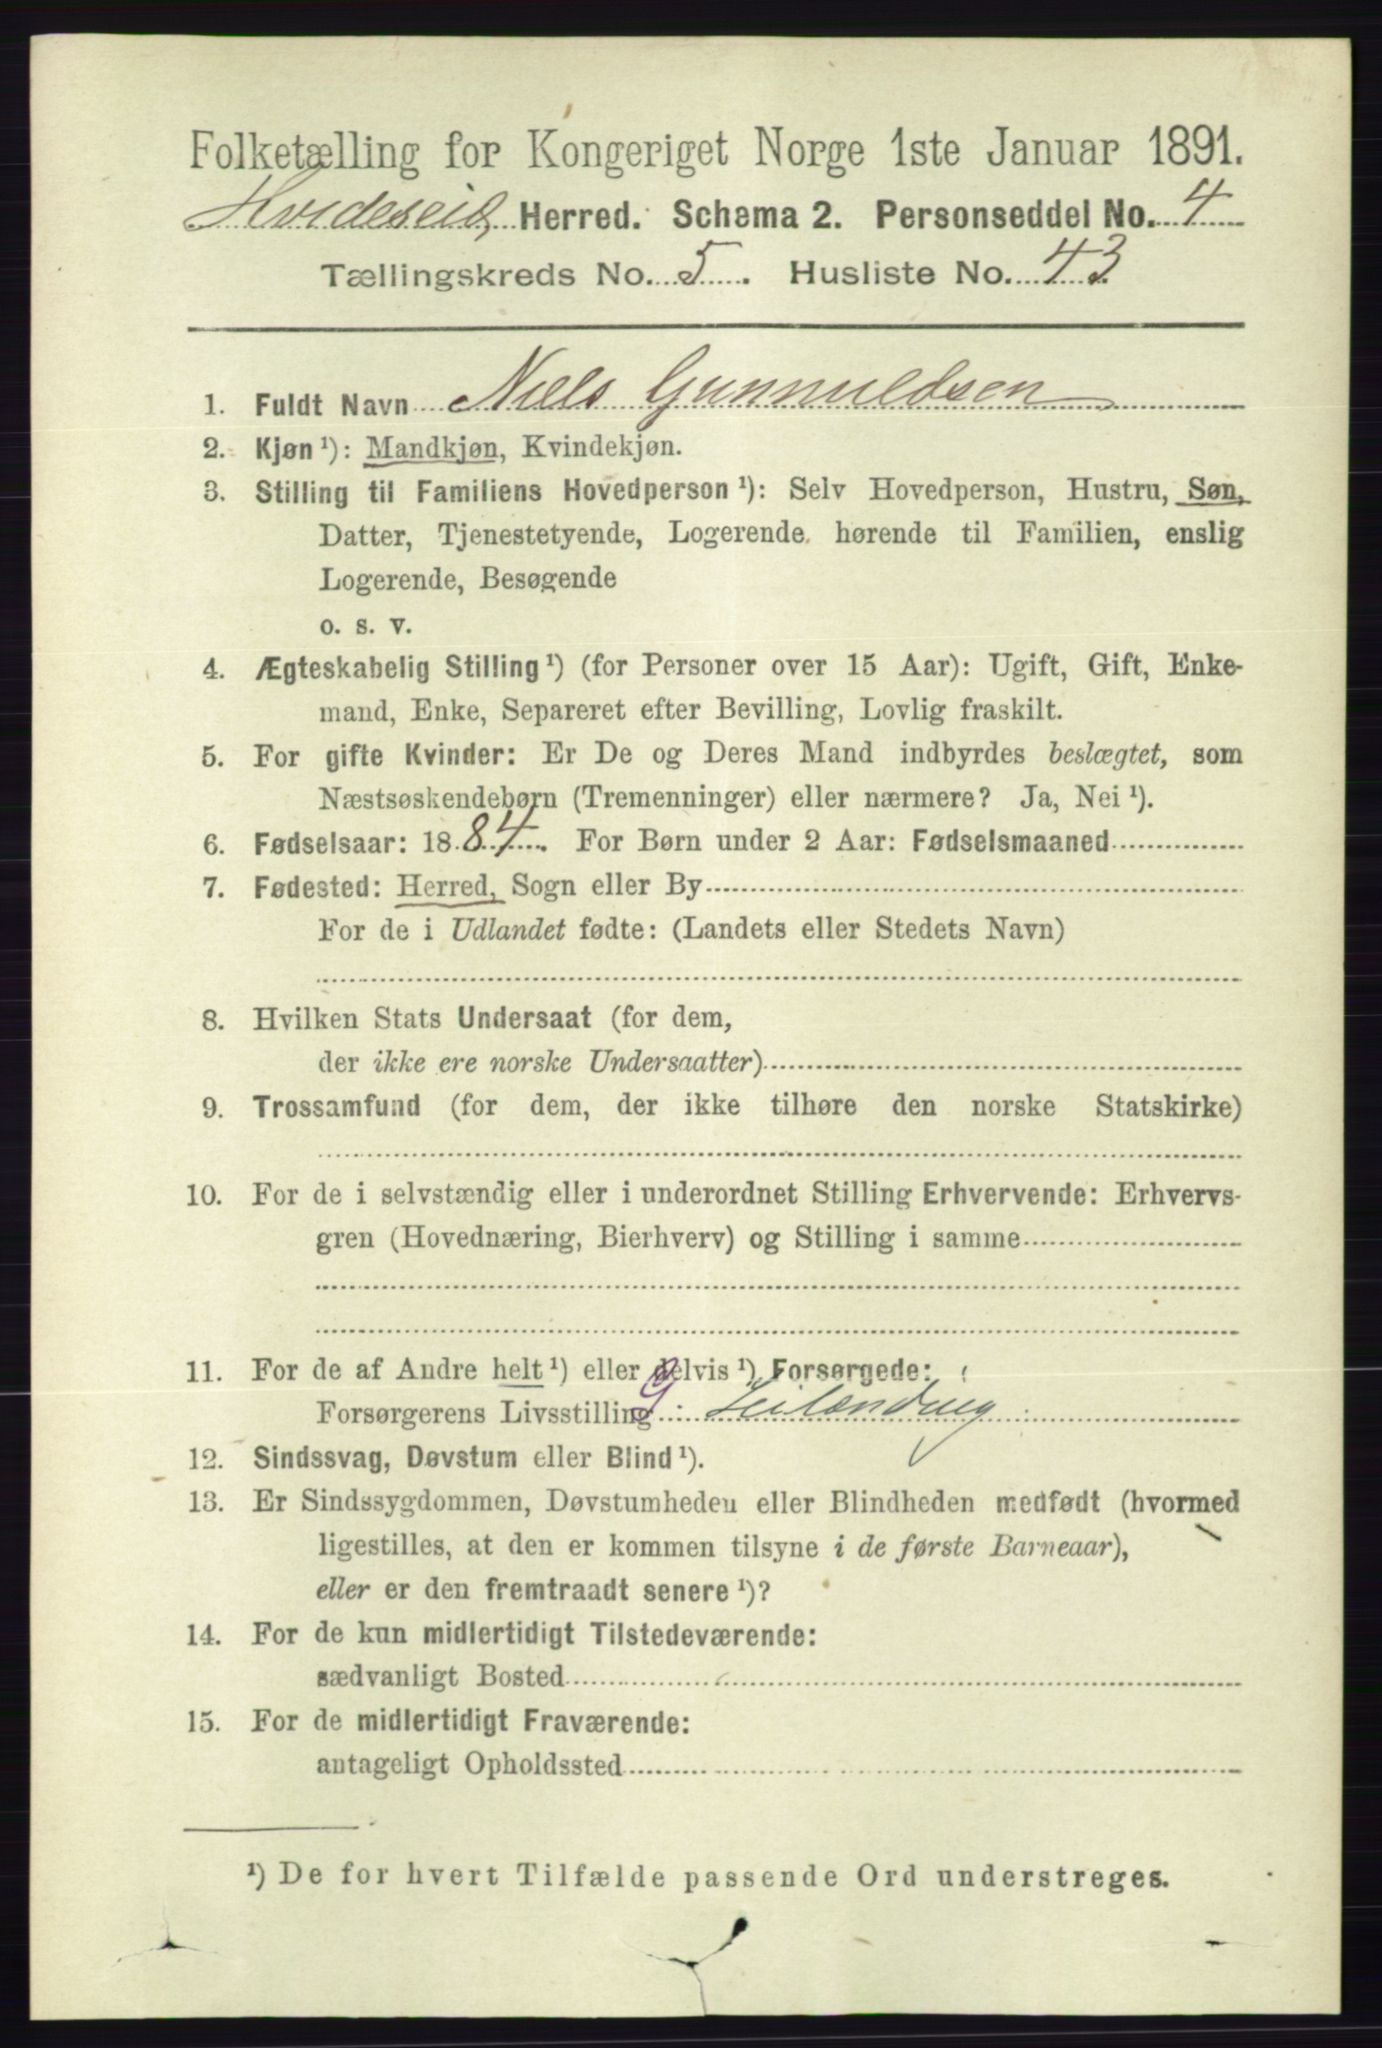 Folketælling for Kongeriget Norge 1ste Januar 1891.
Hvideseid Herred. Schema 2. Personseddel No. 4
Tællingskreds No. 5. Husliste No. 43
1. Fuldt Navn Niels Gunnuldsen
2. Kjøn ¹): Mandkjøn, Kvindekjøn.
3. Stilling til Familiens Hovedperson ¹): Selv Hovedperson, Hustru, Søn,
Datter, Tjenestetyende, Logerende hørende til Familien, enslig
Logerende, Besøgende
o. s. v.
4. Ægteskabelig Stilling ¹) (for Personer over 15 Aar): Ugift, Gift, Enke-
mand, Enke, Separeret efter Bevilling, Lovlig fraskilt.
5. For gifte Kvinder: Er De og Deres Mand indbyrdes beslægtet, som
Næstsøskendebørn (Tremenninger) eller nærmere? Ja, Nei ¹).
6. Fødselsaar: 1884. For Børn under 2 Aar: Fødselsmaaned
7. Fødested: Herred, Sogn eller By
For de i Udlandet fødte: (Landets eller Stedets Navn)
8. Hvilken Stats Undersaat (for dem,
der ikke ere norske Undersaatter)
9. Trossamfund (for dem, der ikke tilhøre den norske Statskirke)
10. For de i selvstændig eller i underordnet Stilling Erhvervende: Erhvervs-
gren (Hovednæring, Bierhverv) og Stilling i samme
11. For de af Andre helt ¹) eller delvis ¹) Forsørgede:
Forsørgerens Livsstilling: 9 Leilænding
12. Sindssvag, Døvstum eller Blind ¹).
13. Er Sindssygdommen, Døvstumheden eller Blindheden medfødt (hvormed
ligestilles, at den er kommen tilsyne i de første Barneaar),
eller er den fremtraadt senere ¹)?
14. For de kun midlertidigt Tilstedeværende:
sædvanligt Bosted
15. For de midlertidigt Fraværende:
antageligt Opholdssted
¹) De for hvert Tilfælde passende Ord understreges.